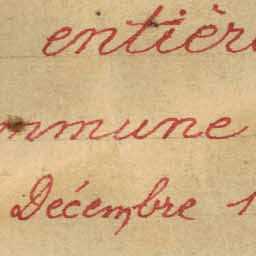 entièr
mmune
Décembre 1